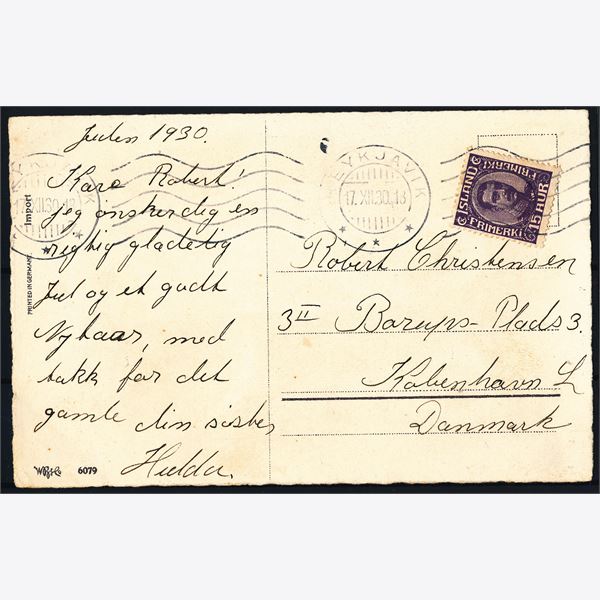 Julen 1930.
Kære Robert!
Jeg ønsker dig en
rigtig glædelig
Jul og et godt
Nytaar, med
takk for det
gamle din søster
Hulda.
PRINTED IN GERMANY
Import
6079
REYKJAVIK
17.XII.30.18
ÍSLAND
FRIMERKI
15 AUR.
FRIMERKI
Robert Christensen
3II Borups-Plads 3.
København L
Danmark